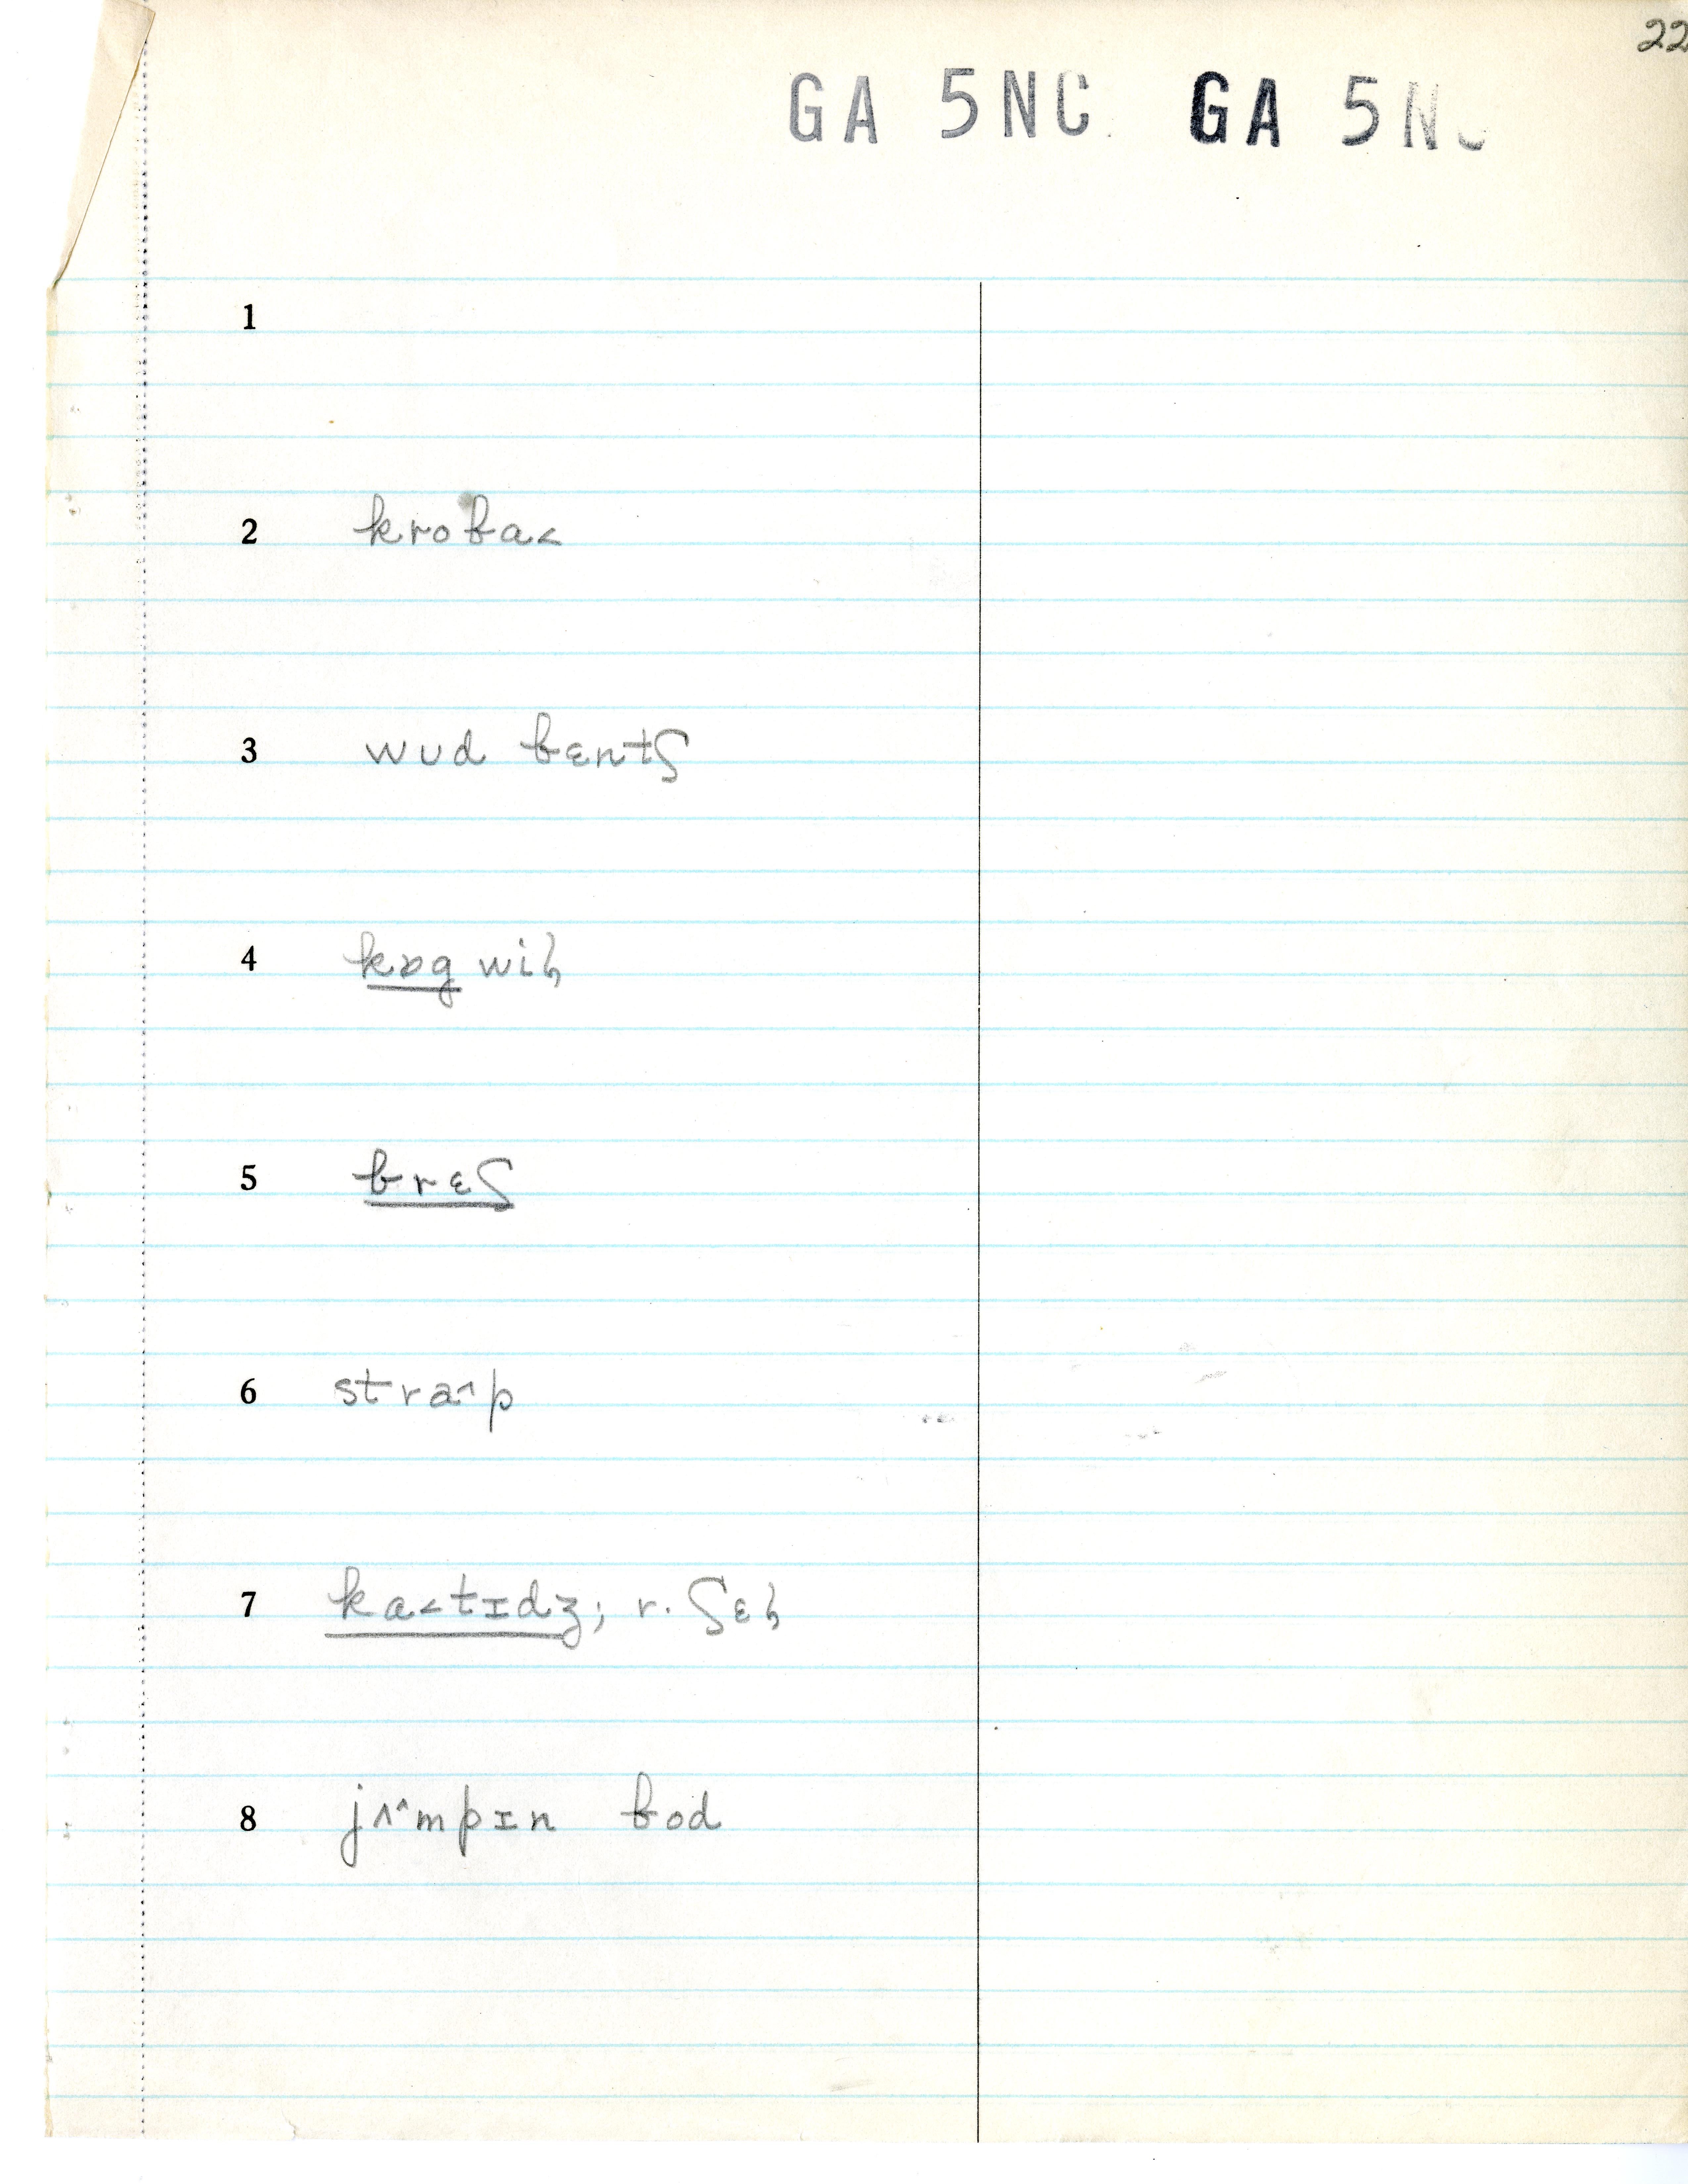 22
GA 5NC GA 5N
1
2 kroba˂
3 wʊd bɛntʃ
4 kɒg wiɫ
5 brɛʃ
6 stra˄p
7 ka˂tɪdʒ; r. ʃɛɫ
8 jʌ˄mpɪn bod